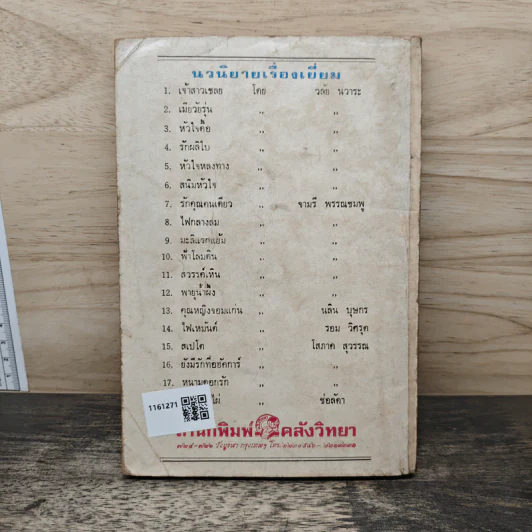 นวนิยายเรื่องเยี่ยม
1. เจ้าสาวเชลย โดย วลัย นวาระ
2. เมียวัยรุ่น ,, ,,
3. หัวใจดื้อ ,, ,,
4. รักผลิใบ ,, ,,
5. หัวใจหลงทาง ,, ,,
6. สนิมหัวใจ ,, ,,
7. รักคุณคนเดียว ,, จามรี พรรณชมพู
8. ไฟกลางลม ,, ,,
9. มะลิแรกแย้ม ,, ,,
10. ฟ้าโลมดิน ,, ,,
11. สวรรค์เหิน ,, ,,
12. พายุน้ำผึ้ง ,, ,,
13. คุณหญิงจอมแก่น ,, นลิน บุษกร
14. ไฟเหมันต์ ,, รอม วิศรุต
15. สเปโต ,, โสภาค สุวรรณ
16. ยังมีรักที่ฮัดการ์ ,, ,,
17. หนามดอกรัก ,, ,,
ไผ่ ,, ช่อลัดา
1161271
สำนักพิมพ์ คลังวิทยา